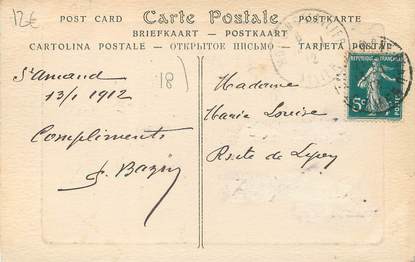 12€
POST CARD Carte Postale POSTKARTE
BRIEFKAART — POSTKAART
CARTOLINA POSTALE — ОТКРЫТОЕ ПИСЬМО — TARJETA POSTAL
St Amand
13/1 1912
Compliments
18
Madame
Marie Louise
Route de
5c